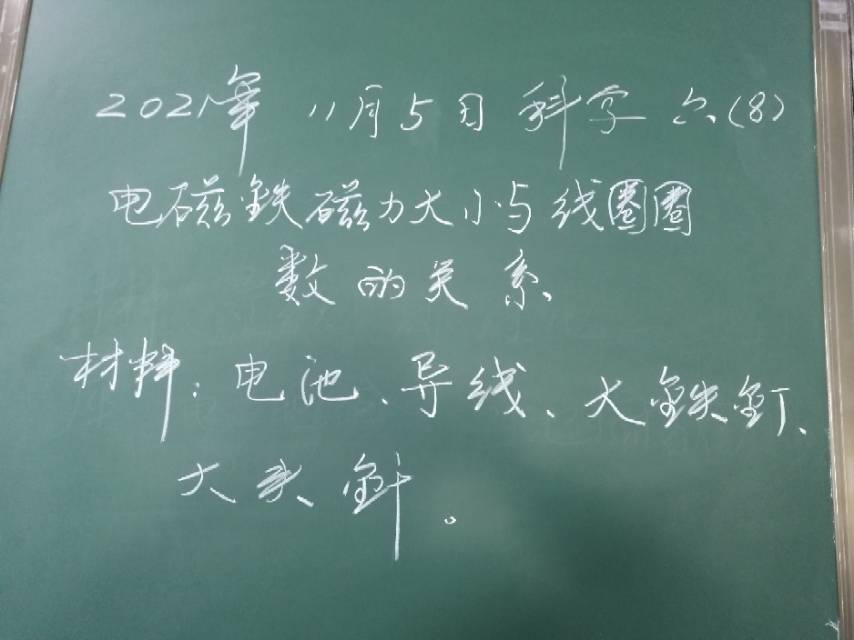 2021年 11月5日 科学 六(8)
电磁铁磁力大小与线圈圈
数的关系
材料：电池、导线、大铁钉、
大头针。